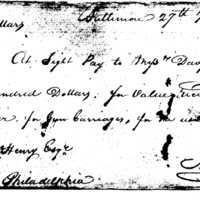 Baltimore 27th
ollars
At Sight Pay to Messrs Dav
undred Dollars, for Value rec
for Gun Carriages, for the use
Henry Esqr.
Philadelphia